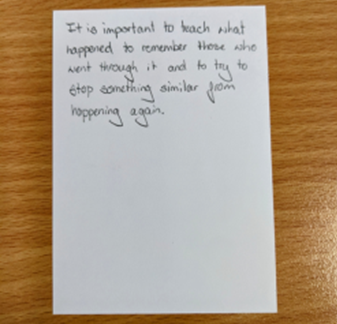 It is important to teach what
happened to remember those who
went through it and to try to
stop something similar from
happening again.